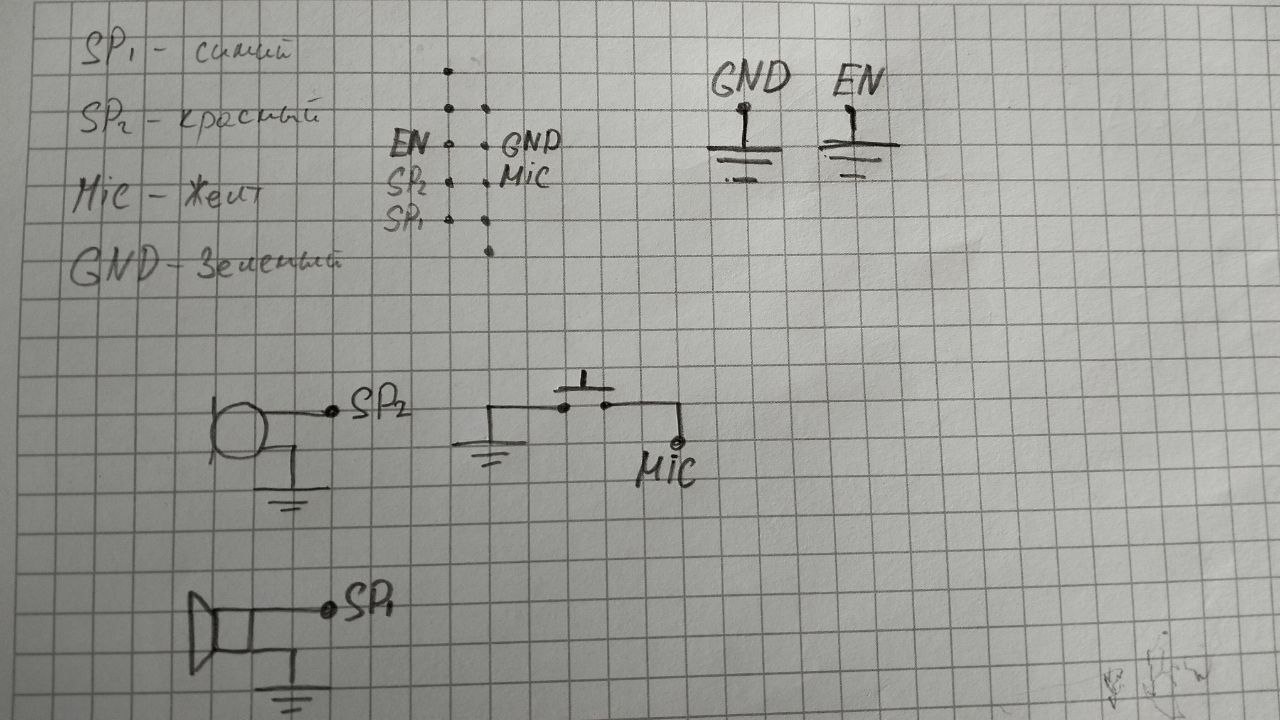 SP1 - синий
SP2 - красный
Mic - Желт
GND - Зеленый
EN GND
SP2 MiC
SP1
GND EN
SP2
MiC
SP1